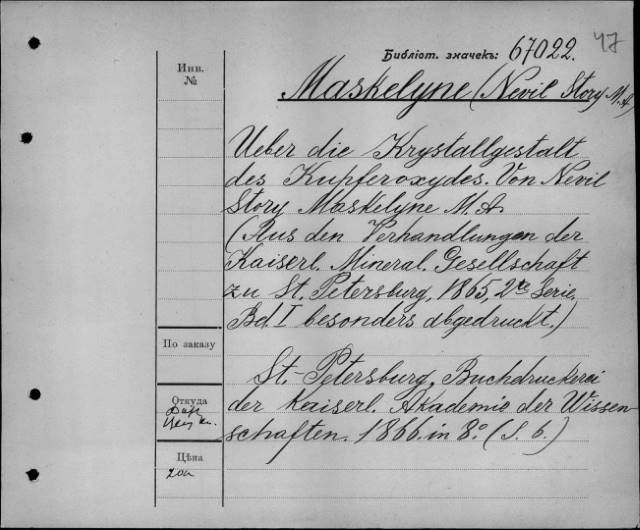 47
Библіот. значекъ: 67022.
Инв.
№
Maskelyne (Nevil Story M.A)
Ueber die Krystallgestalt
des Kupferoxydes. Von Nevil
Story Maskelyne M.A.
(Aus den Verhandlungen der
Kaiserl. Mineral. Gesellschaft
zu St. Petersburg, 1865, 2te Serie,
Bd. I besonders abgedruckt.)
По заказу
St.-Petersburg, Buchdruckerei
der Kaiserl. Akademie der Wissen-
schaften. 1866. in 8º. (S. 6.)
Откуда
Цѣна